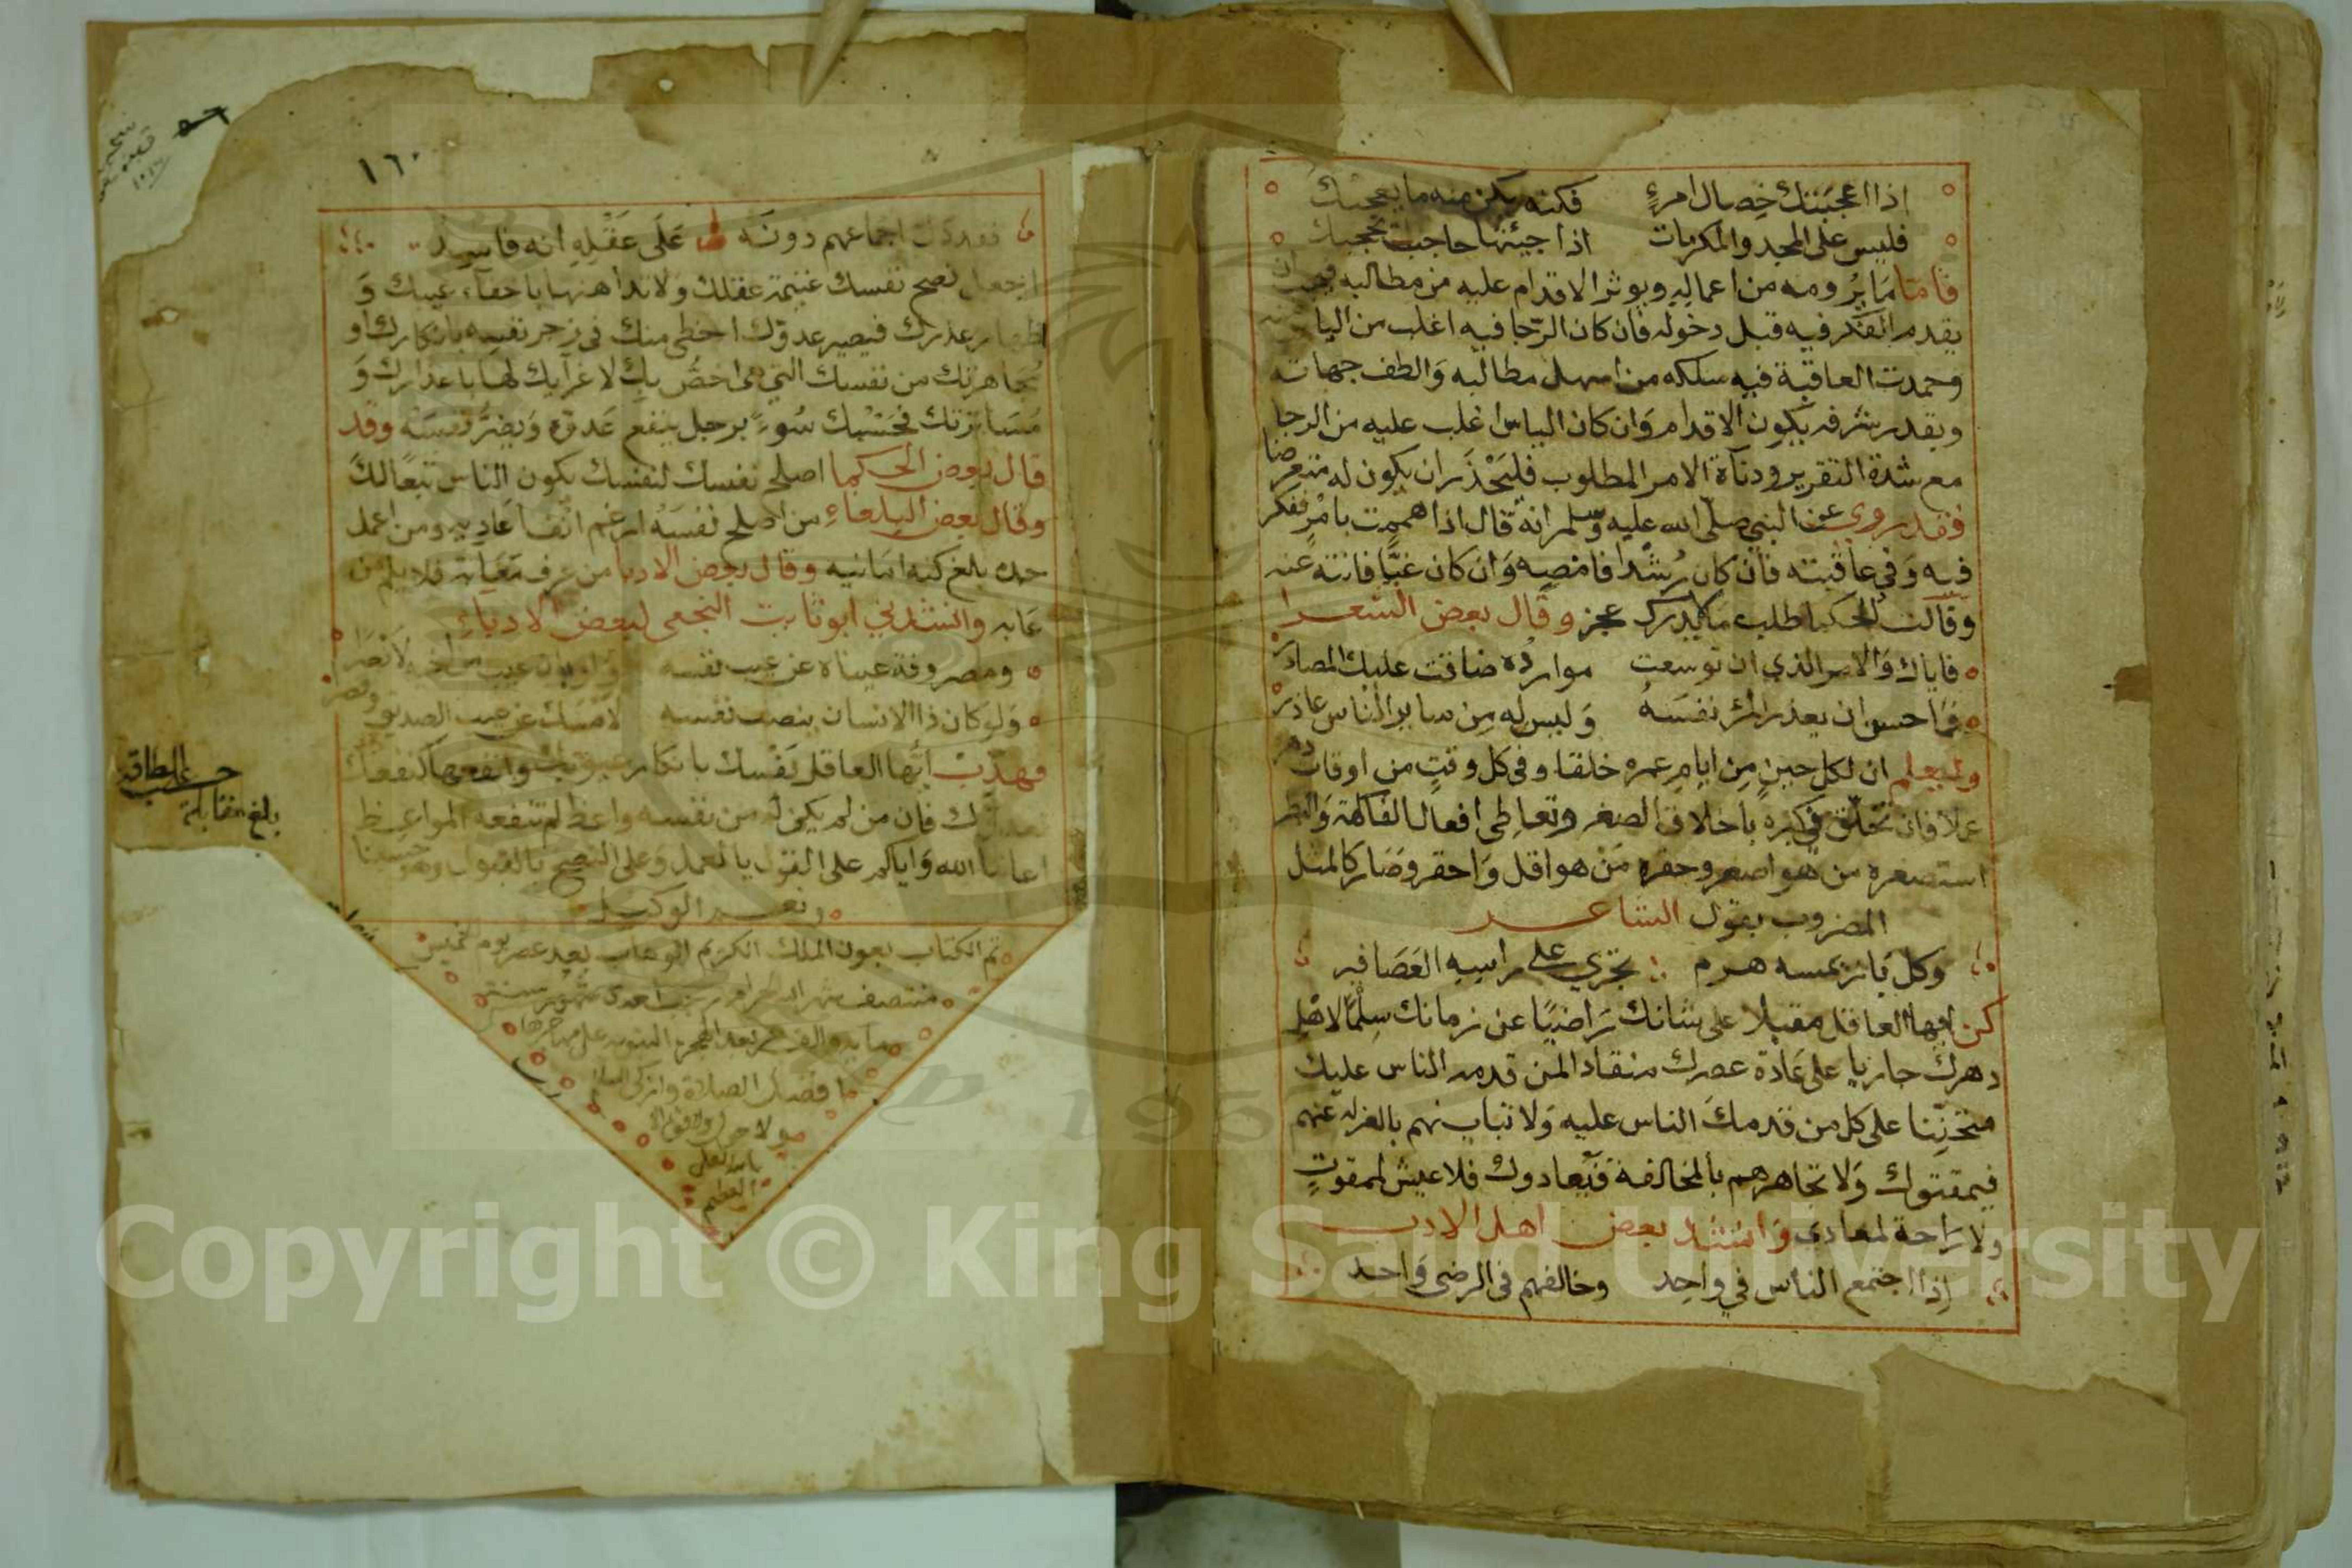 اذا اعجبتك خصال امرءٍ فكنه يكن منه ما يعجبك
فليس على المجد والمكرمات اذا جيئتها حاجب يحجبك
فامّا مَا يرُومه من اعماله ويوثر الاقدام عليه من مطالبه فيجب ان
يقدم الفكر فيه قبل دخوله فان كان الرّجا فيه اغلب من الياس منه
وحمدت العاقبة فيه سلكه من اسهل مطالبه وَالطف جهاته
وبقدر شرفه يكون الاقدام وَان كان الياس اغلب عليه من الرجا
مع شدة التغرير ودنآة الامر المطلوب فليَحْذَر ان يكون له متعرضا
فقد روي عن النبي صلّى الله عليه وسلم انهُ قال اذا هممت بامْرٍ ففكر
فيه وَفي عاقبته فان كان رُشدًا فامضِه وَان كان غيًّا فانته عنه
وقالت الحكما طلب ما لا يدرك عجز وقال بعض الشعرا
فاياك وَالامر الذي ان توسعت مواردُه ضاقت عليك المصادر
فمَا حسن ان يعذر المرْ نفسَهُ وَليس له مِن ساير الناس عاذر
وليعلم ان لكل حينٍ مِن ايامِ عمره خلقا وفى كل وقتٍ من اوقات دهره
عملا فان تخلّق في كبره باخلاق الصغر وتعاطى افعال الفكاهة وَالبطر
استصغره من هو اصغر وحقره مَن هو اقل وَاحقر وصَار كالمثل
المضروب بقول الشاعر
وكل بَاز يمسه هرم تخري على راسِه العَصَافير
كن ايها العاقل مقبلا على شانك رَاضيًا عن زمانك سِلمًا لاهل
دهرك جاريا على عَادة عصرك منقادا لمن قدمه الناس عليك
متحنِّنا على كل من قدمكَ الناس عليه وَلا تباينهم بالعزلة عنهم
فيمقتوك وَلا تجاهرهم بالمخالفة فيُعادوك فلا عيش لممقوتٍ
ولا رَاحة لمعادى وَانشد بعض اهل الادب
اذا اجتمع الناس في واحِد وخالفهم فى الرضى وَاحد
١٦٠
فقد دل اجماعهم دونَه عَلَى عَقْلِهِ انه فاسِد
اجعل نصح نفسك غنيمة عقلك وَلا تداهنها باخفآء عيبك وَ
اظهار عذرك فيصير عدوّك احظى منك فى زجر نفسِه بانكارك او
مُجاهرتك من نفسك التي هى اخصُّ بِك لاغرآيك لهَا باعذارك وَ
مُسَاترتك فحَسْبك سُوءً برجل ينفع عَدوّه وَيضرّ نفسَه وقد
قال بعض الحكما اصلح نفسك لنفسك يكون الناس تبعًا لك
وقال بعض البلغاءِ من اصلح نفسَهُ ارغم انف اعَادِيه ومن اعمل
جده بلغ كنه امانيه وقال بعض الادبا من عرف مَعَايبه فلا يلم من
عَابه وانشدني ابو ثابت النجعى لبعض الادباءِ
ومصروفة عيناه عن عيب نفسه ولو بان عيب من اخيه لابصَرا
وَلو كان ذا الانسان ينصف نفسه لامسَك عن عيب الصديق وقصرا
فهذّب ايُّها العاقل نَفسك بافكار عيوبك وانفعها كنفعك
لعدوّك فان من لم يكن له من نفسه واعظ لم تنفعه المواعِظ
اعاننا الله وَاياكم على القول بالعمل وَعلى النصح بالقبول وهو حسبنا
ونعم الوكيل
تم الكتاب بعون الملك الكريم الوهاب بعد عصر يوم الخميس
منتصف شهر الله الحرام رجب احدى شهور سنة
ماية والف من بعد الهجرة النبوية على مهاجرها
افضل الصلاة وازكى السلام
ولا حول ولا قوة الا
بالله العلي
العظيم
بلغ مقابلة
حسب الطاقة